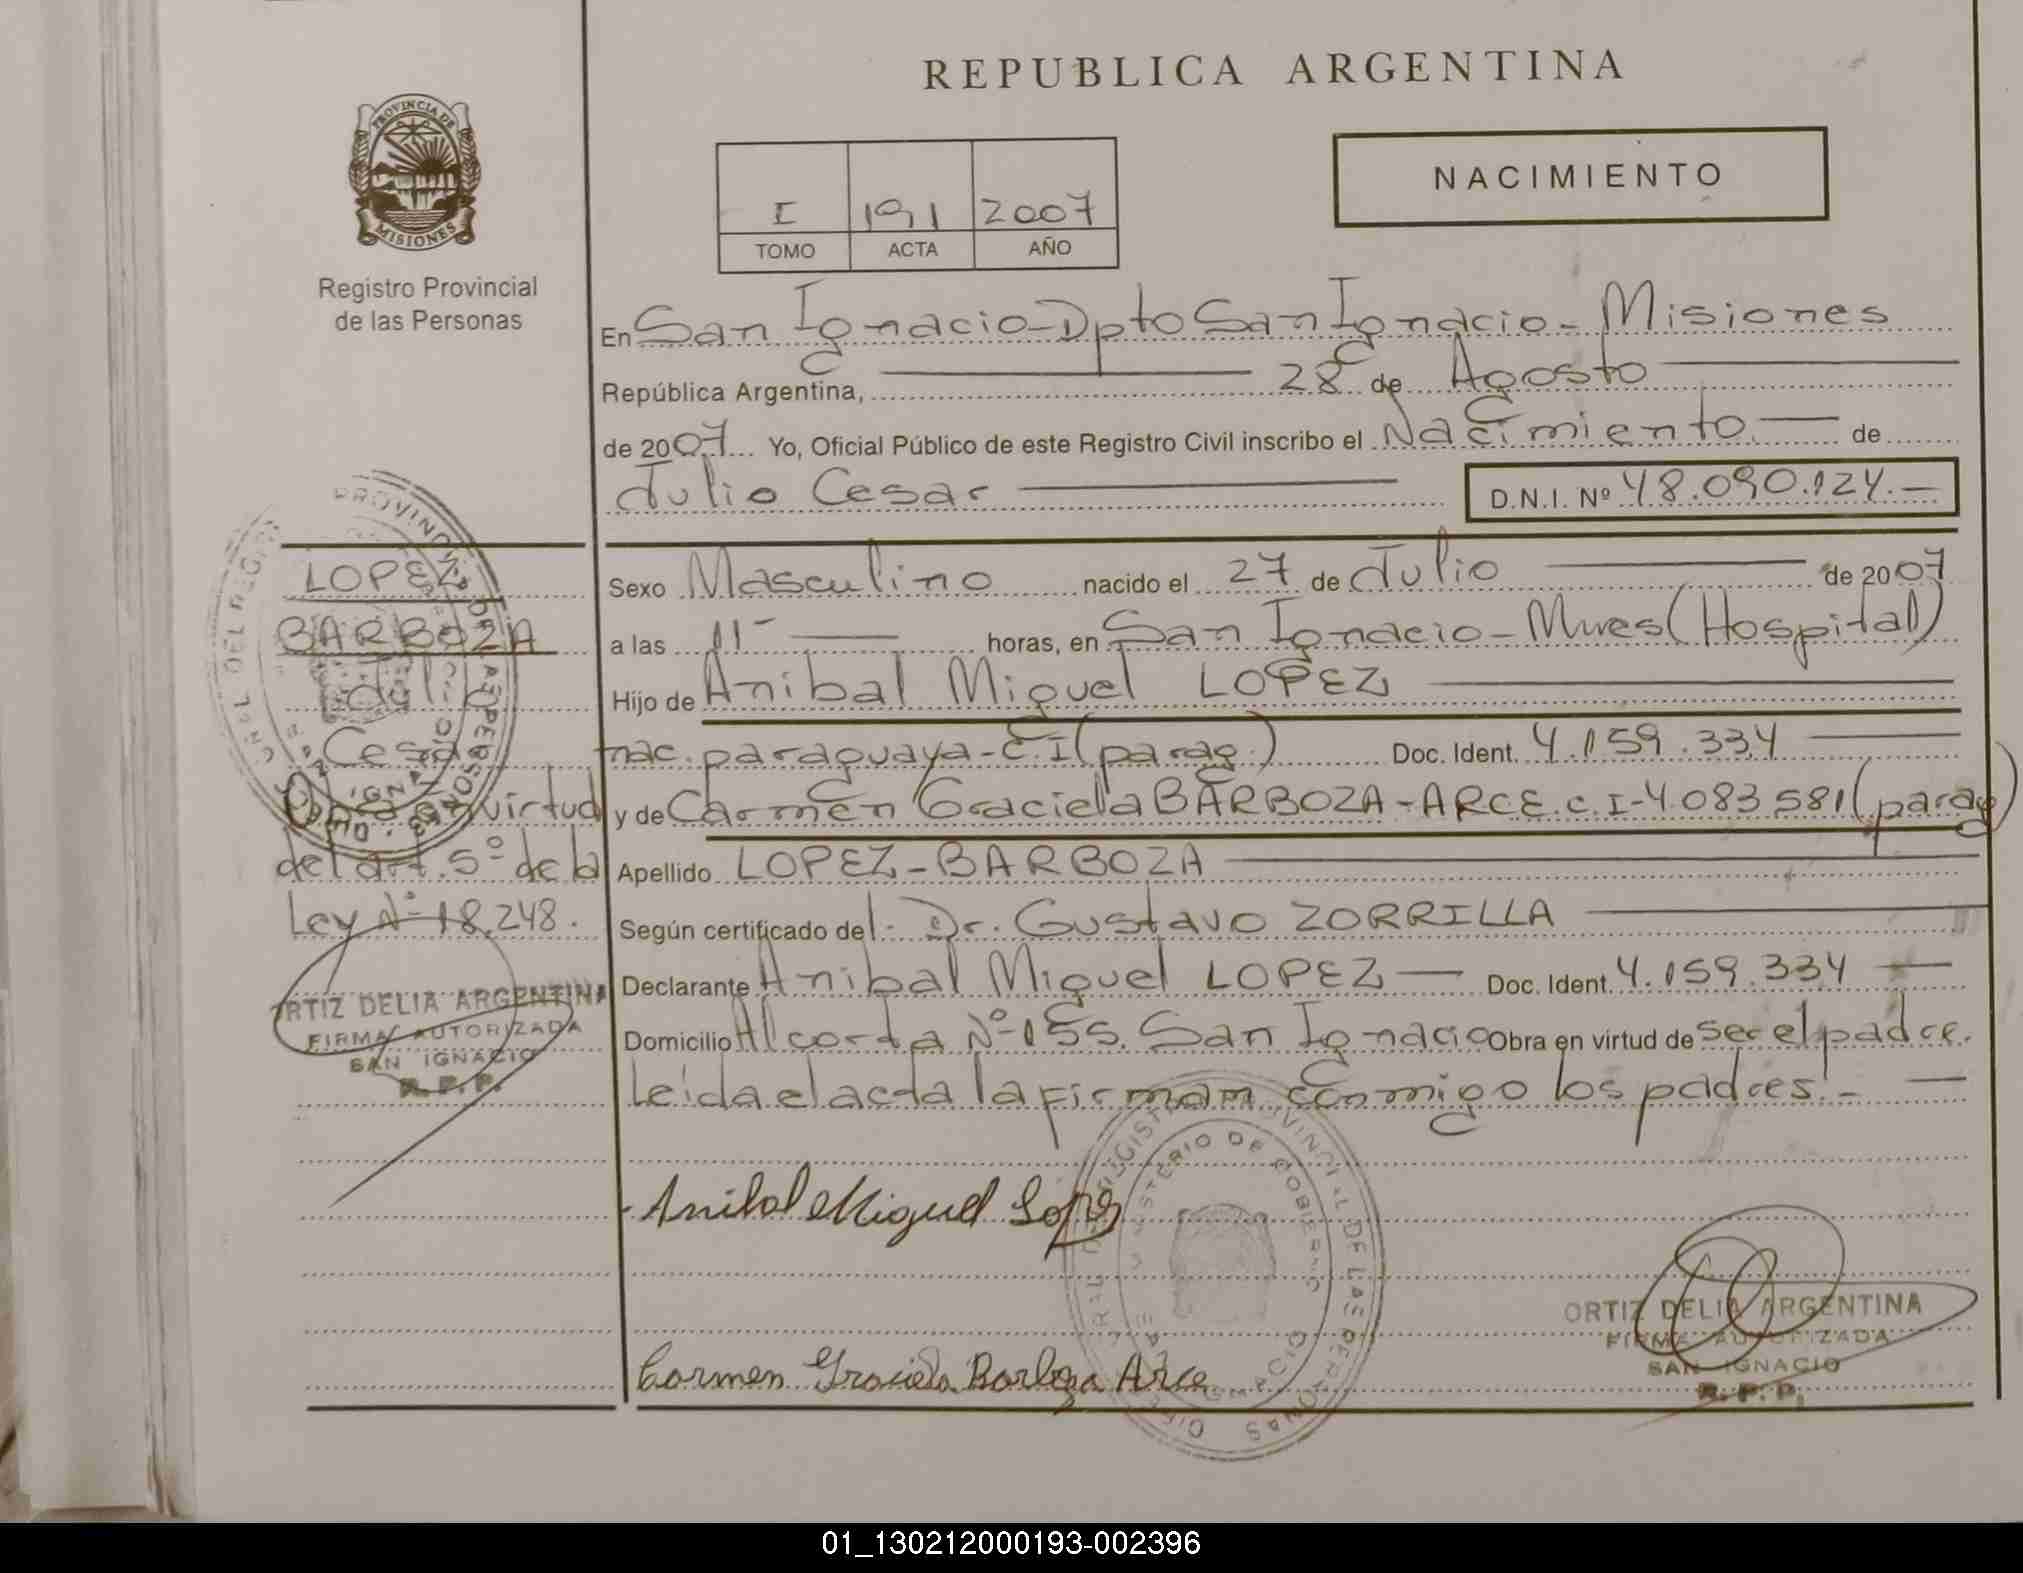 REPUBLICA ARGENTINA
PROVINCIA DE
MISIONES
Registro Provincial
de las Personas
I 191 2007
TOMO ACTA AÑO
NACIMIENTO
En San Ignacio-Dpto San Ignacio-Misiones
República Argentina, 28 de Agosto
de 2007 Yo, Oficial Público de este Registro Civil inscribo el Nacimiento de
Julio Cesar D.N.I. Nº 48.090.124.-
LOPEZ
BARBOZA
Julio
Cesar
Obra en virtud
del art. 5º de la
Ley Nº 18.248.
ORTIZ DELIA ARGENTINA
FIRMA AUTORIZADA
SAN IGNACIO
R. P. P.
Sexo Masculino nacido el 27 de Julio de 2007
a las 11- horas, en San Ignacio-Mnes (Hospital)
Hijo de Anibal Miguel LOPEZ
nac. paraguaya-C.I (parag.) Doc. Ident. 4.159.334
y de Carmen Graciela BARBOZA-ARCE.C.I-4.083.581 (parag)
Apellido LOPEZ-BARBOZA
Según certificado del- Dr. Gustavo ZORRILLA
Declarante Anibal Miguel LOPEZ Doc. Ident. 4.159.334
Domicilio Alcorta Nº-155. San Ignacio Obra en virtud de ser el padre.
Leída el acta la firman conmigo los padres.-
Anibal Miguel Lopez
ORTIZ DELIA ARGENTINA
FIRMA AUTORIZADA
SAN IGNACIO
R. P. P.
Carmen Graciela Barboza Arce
01_130212000193-002396